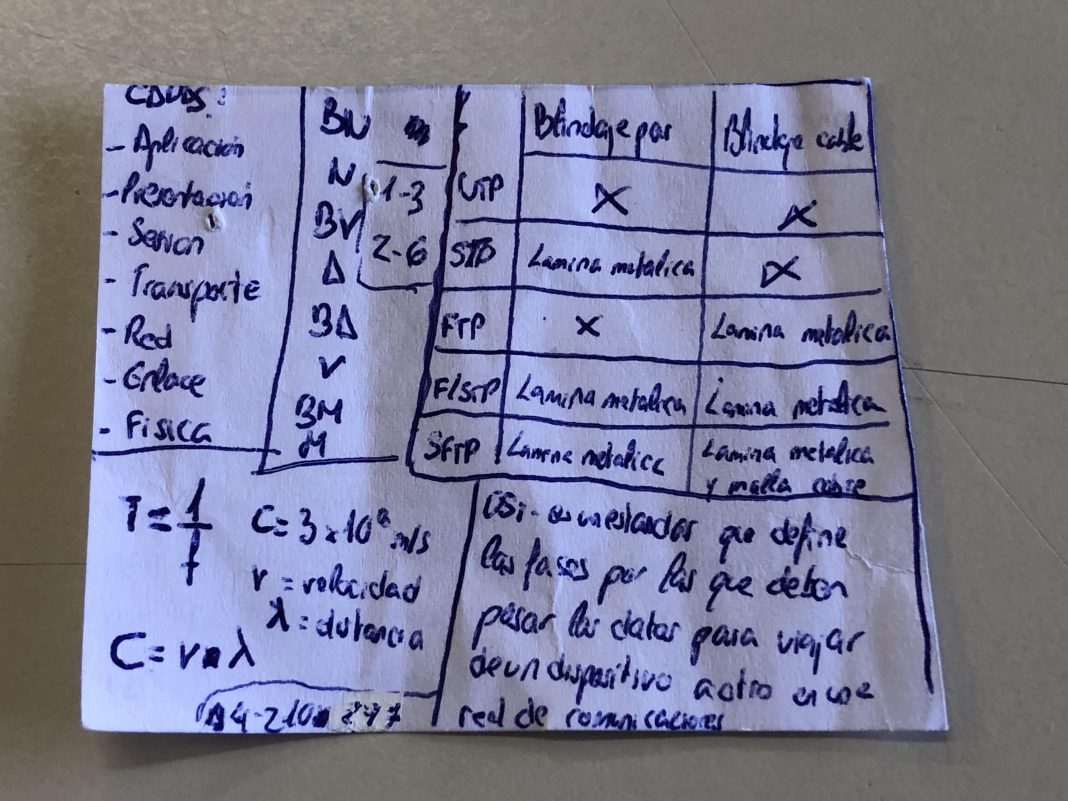 - Aplicación
- Presentacion
- Sesion
- Transporte
- Red
- Enlace
- Fisica
BN
N
BV
Δ
BΔ
V
BM
M
1-3
2-6
Blindaje par
Blindaje cable
UTP
X
X
STP
Lamina metalica
X
FTP
X
Lamina metalica
F/STP
Lamina metalica
Lamina metalica
SFTP
Lamina metalica
Lamina metalica
y malla cobre
T = 1/f
C = 3 x 10⁸ m/s
v = velocidad
λ = distancia
C = v · λ
A4-210x297
OSI - es un estandar que define
las fases por las que deben
pasar los datos para viajar
de un dispositivo a otro en una
red de comunicaciones